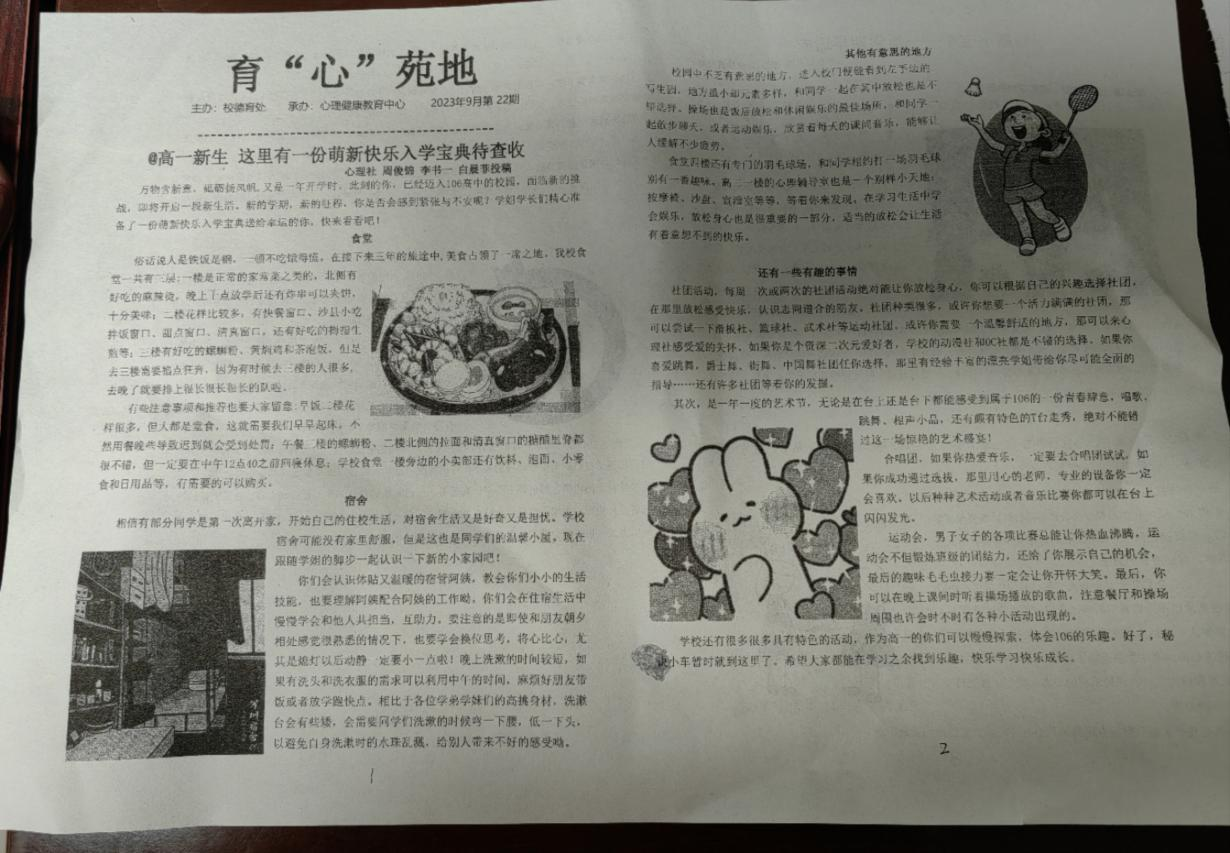 育“心”苑地
主办：校德育处 承办：心理健康教育中心 2023年9月第22期
@高一新生 这里有一份萌新快乐入学宝典待查收
心理社 周俊锦 李书一 白晨菲投稿
万物含新意，砥砺扬风帆，又是一年开学时。此刻的你，已经迈入106高中的校园，面临新的挑
战，即将开启一段新生活。新的学期，新的征程，你是否会感到紧张与不安呢？学姐学长们精心准
备了一份萌新快乐入学宝典送给幸运的你，快来看看吧！
食堂
俗话说人是铁饭是钢，一顿不吃饿得慌，在接下来三年的旅途中，美食占领了一席之地，我校食
堂一共有三层：一楼是正常的家常菜之类的，北侧有
好吃的麻辣烫，晚上十点放学后还有炸串可以夹饼，
十分美味；二楼花样比较多，有快餐窗口、沙县小吃
拌饭窗口、甜点窗口、清真窗口，还有好吃的
等；三楼有好吃的螺蛳粉、黄焖鸡和茶泡饭，但是
去三楼需要猛点狂奔，因为有时候去三楼的人很多，
去晚了就要排上很长很长很长的队啦。
有些注意事项和推荐也要大家留意：早饭二楼花
样很多，但人都是最多，这就需要我们早早起床，不
然用餐晚些导致迟到就会受到处罚；午餐三楼的螺蛳粉、二楼北侧的拉面和清真窗口的糖醋里脊都
很不错，但一定要在中午12点40之前回寝休息；学校食堂一楼旁边的小卖部还有饮料、泡面、小零
食和日用品等，有需要的可以购买。
宿舍
相信有部分同学是第一次离开家，开始自己的住校生活，对宿舍生活又是好奇又是担忧。学校
宿舍可能没有家里舒服，但是这也是同学们的温馨小屋，现在
跟随学姐的脚步一起认识一下新的小家园吧！
你们会认识体贴又温暖的宿管阿姨，教会你们小小的生活
技能，也要理解阿姨配合阿姨的工作呦，你们会在住宿生活中
慢慢学会和他人共担当，互助力。要注意的是即使和朋友朝夕
相处感觉很熟悉的情况下，也要学会换位思考，将心比心，尤
其是熄灯以后动静一定要小一点啦！晚上洗漱的时间较短，如
果有洗头和洗衣服的需求可以利用中午的时间，麻烦好朋友带
饭或者放学跑快点。相比于各位学弟学妹们的高挑身材，洗漱
台会有些矮，会需要同学们洗漱的时候弯一下腰，低一下头，
以避免自身洗漱时的水珠乱溅，给别人带来不好的感受呦。
1
其他有意思的地方
校园中不乏有意思的地方，进入校门便能看到左手边的
写生园，地方虽小却元素多样，和同学一起在其中放松也是不
错选择。操场也是饭后放松和休闲娱乐的最佳场所，和同学一
起散步聊天，或者运动娱乐，欣赏着每天的课间音乐，能够让
人缓解不少疲劳。
食堂四楼还有专门的羽毛球场，和同学相约打一场羽毛球
别有一番趣味。高二一楼的心理辅导室也是一个别样小天地，
按摩椅、沙盘、宣泄室等等，等着你来发现，在学习生活中学
会娱乐，放松身心也是很重要的一部分，适当的放松会让生活
有着意想不到的快乐。
还有一些有趣的事情
社团活动，每周一次或两次的社团活动绝对能让你放松身心，你可以根据自己的兴趣选择社团，
在那里放松感受快乐，认识志同道合的朋友。社团种类很多，或许你想要一个活力满满的社团，那
可以尝试一下滑板社、篮球社、武术社等运动社团，或许你需要一个温馨舒适的地方，那可以来心
理社感受爱的关怀。如果你是个资深二次元爱好者，学校的动漫社和OC社都是不错的选择。如果你
喜爱跳舞，爵士舞、街舞、中国舞社团任你选择，那里有经验丰富的漂亮学姐带给你尽可能全面的
指导……还有许多社团等着你的发掘。
其次，是一年一度的艺术节，无论是在台上还是台下都能感受到属于106的一份青春肆意，唱歌、
跳舞、相声小品，还有颇有特色的T台走秀，绝对不能错
过这一场惊艳的艺术盛宴！
合唱团，如果你热爱音乐，一定要去合唱团试试，如
果你成功通过选拔，那里用心的老师，专业的设备你一定
会喜欢，以后种种艺术活动或者音乐比赛你都可以在台上
闪闪发光。
运动会，男子女子的各项比赛总能让你热血沸腾，运
动会不但锻炼班级的团结力，还给了你展示自己的机会，
最后的趣味毛毛虫接力赛一定会让你开怀大笑。最后，你
可以在晚上课间时听着操场播放的歌曲，注意餐厅和操场
周围也许会时不时有各种小活动出现的。
学校还有很多很多具有特色的活动，作为高一的你们可以慢慢探索，体会106的乐趣。好了，秘
小车暂时就到这里了。希望大家都能在学习之余找到乐趣，快乐学习快乐成长。
2